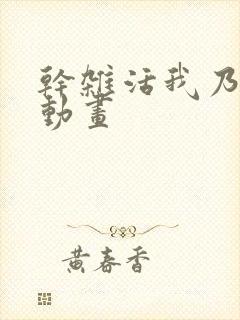 幹雑活我乃
動畫
黄春香